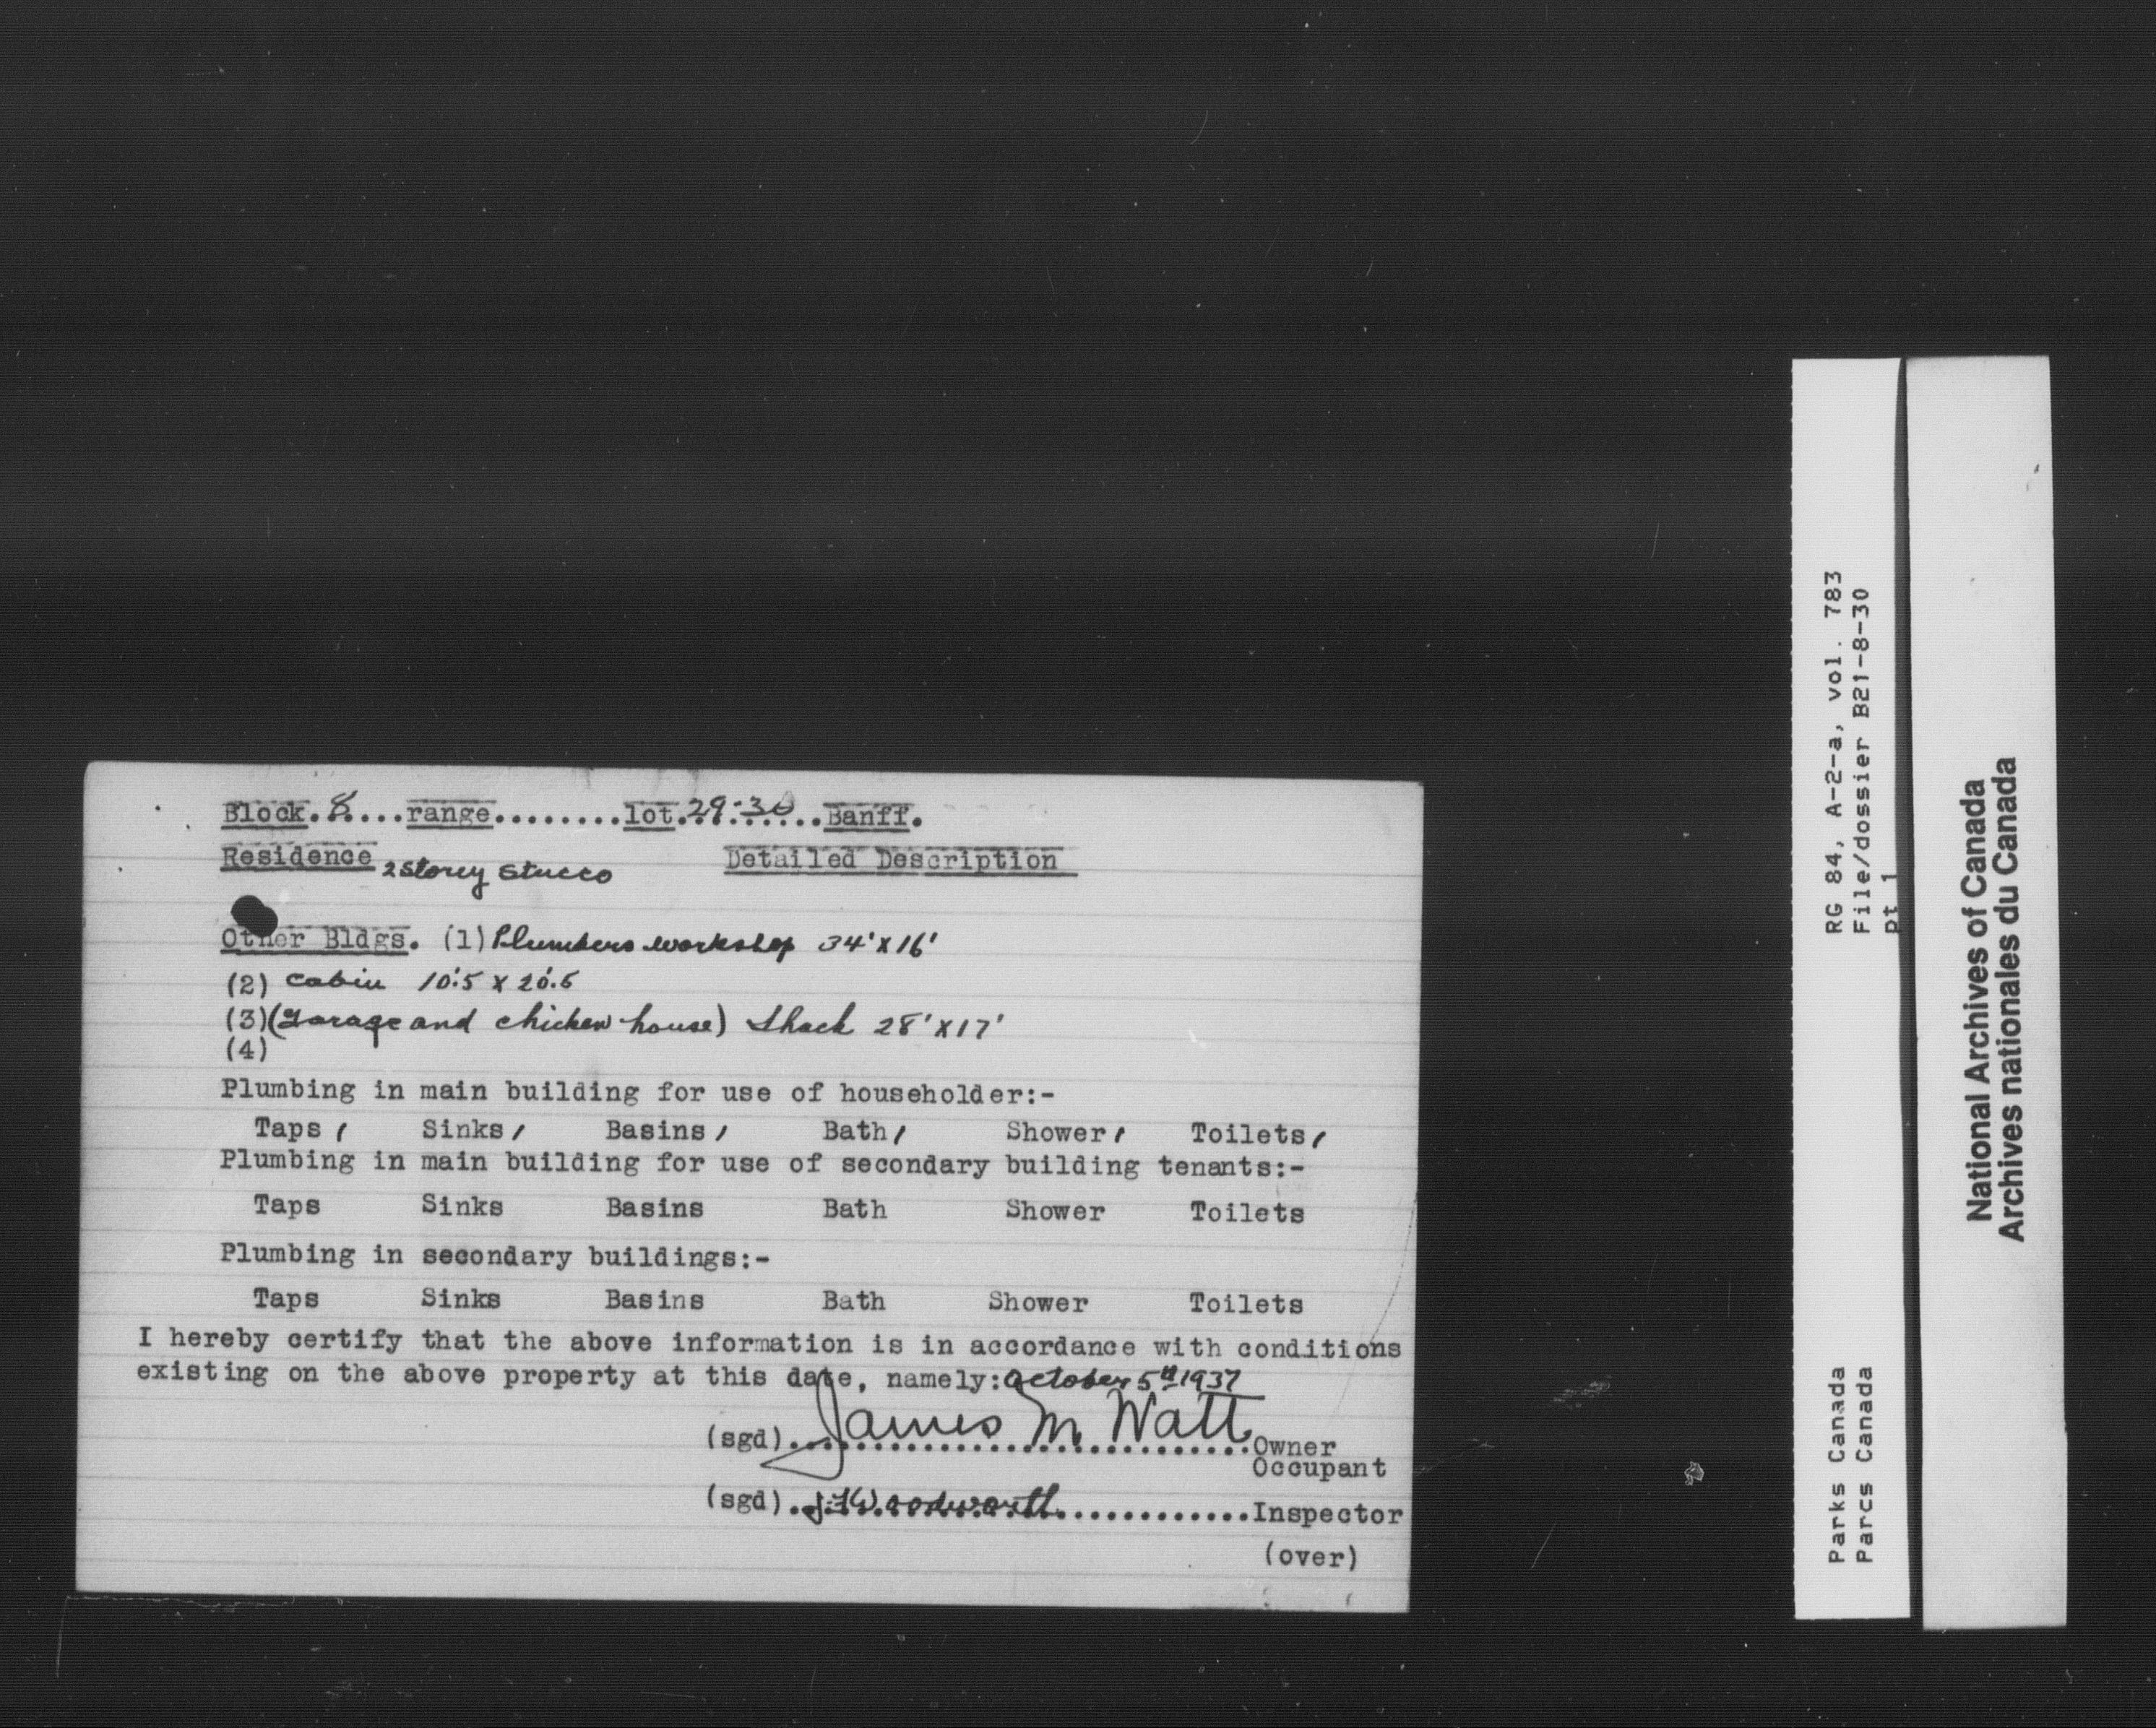 Block.8....range........lot.29:30..Banff.
Residence 2 Storey Stucco Detailed Description
Other Bldgs. (1) Plumbers workshop 34' X 16'
(2) Cabin 10'.5 X 20'.5
(3) (Garage and chicken house) Shack 28' X 17'
(4)
Plumbing in main building for use of householder:-
Taps 1 Sinks 1 Basins 1 Bath 1 Shower 1 Toilets 1
Plumbing in main building for use of secondary building tenants:-
Taps Sinks Basins Bath Shower Toilets
Plumbing in secondary buildings:-
Taps Sinks Basins Bath Shower Toilets
I hereby certify that the above information is in accordance with conditions
existing on the above property at this date, namely: October 5th 1937
(sgd) James M Watt Owner
Occupant
(sgd) Woodworth Inspector
(over)
RG 84, A-2-a, vol. 783
File/dossier B21-8-30
pt 1
Parks Canada
Parcs Canada
National Archives of Canada
Archives nationales du Canada